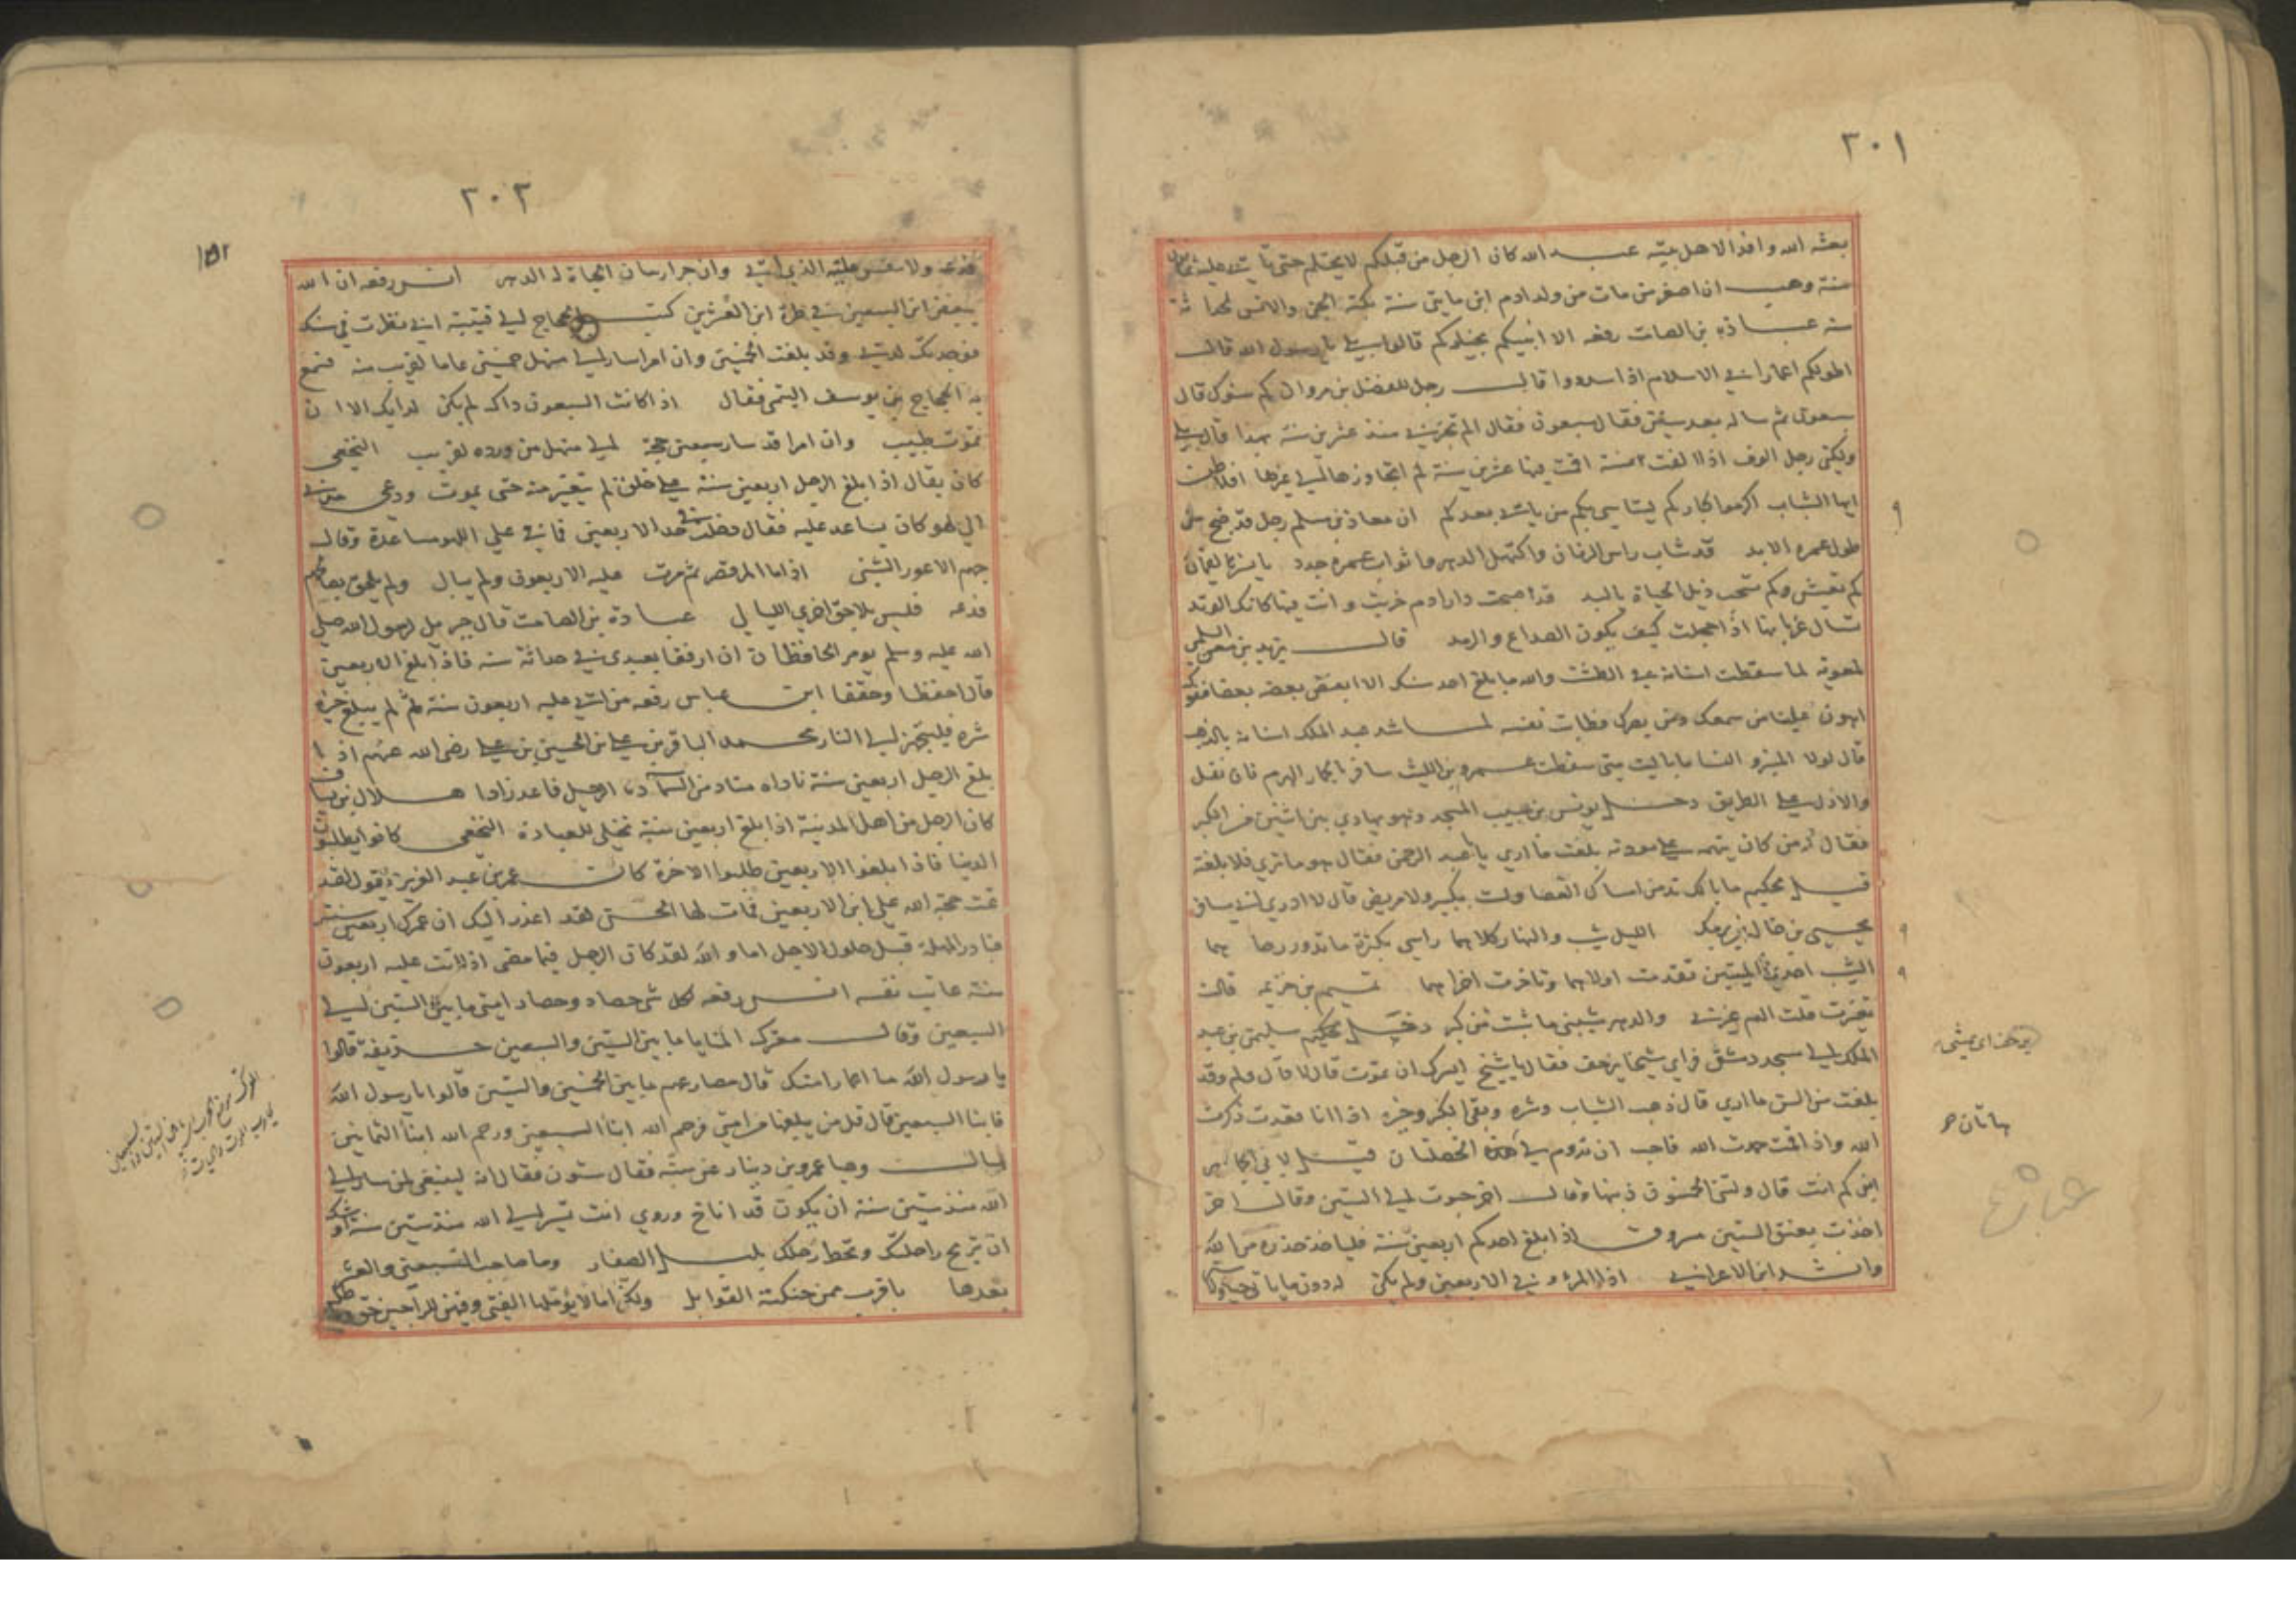 ٣٠١
بعثه الله وافدا لاهل بيته عبد الله كان الرجل من قبلكم لا يحتلم حتى يأتي عليه ثمانون
سنة وهب ان اصغر من مات من ولد ادم ابن مايتى سنة بكته الجن والانس لحداثة
سنه عبادة بن الصامت رفعه الا انبيكم بخياركم قالوا بلى يا رسول الله قال
اطولكم اعمارا في الاسلام اذا سددوا قال رجل للفضل بن مروان كم سنوك قال
سبعون ثم ساله بعد سنين فقال سبعون فقال الم تخبرني منذ عشرين سنة بهذا قال بلى
ولكني رجل الوف اذا الفت سنة اقمت فيها عشرين سنة لم اتجاوزها الى غيرها افلاطن
ايها الشباب اكرموا كباركم ليتاسى بكم من ياتي بعدكم ان معاذ بن مسلم رجل قد ضج من
طول عمره الابد قد شاب راس الزمان واكتهل الدهر واثواب عمره جدد يا نسر لقمان
كم تعيش وكم تسحب ذيل الحياة يا لبد قد اصبحت دار ادم خربت وانت فيها كانك الوتد
تسال غربانها اذا حجلت كيف يكون الصداع والرمد قال يزيد بن معن السلمي
لمعوية لما سقطت اسنانه في الطشت والله ما بلغ احد سنك الا ابغض بعضه بعضا ففوك
اهون علينا من سمعك وبصرك فطابت نفسه لما شد عبد الملك اسنانه بالذهب
قال لولا المنبر والنسا ما باليت متى سقطت عمرو بن الليث سافر بكبار الهرم فان نفل
والاذل على الطريق دخل يونس بن حبيب المسجد وهو يهادي بين اثنين من الكبر
فقال له من كان يتهمه على مودته بلغت ما ارى يا عبد الرحمن فقال هو ما ترى فلا بلغته
قيل لحكيم ما بالك تدمن امساك العصا ولست بكبير ولا مريض قال لادري اني مسافر
يحيى بن خالد بن برمك الليل شيب والنهار كلاهما راسي بكثرة ما تدور رحا هما
الشيب احدى الميتتين تقدمت اولاهما وتاخرت اخراهما تميم بن خزيمة قالت
تغيرت قلت الهم غيرني والدهر شيبني ما شبت من كبر دخل حكيم سليمن بن عبد
الملك الى مسجد دمشق فراى شيخا يزحف فقال يا شيخ ايسرك ان تموت قال لا قال ولم وقد
بلغت من السن ما ارى قال ذهب الشباب وشره وبقى الكبر وخيره اذا انا قعدت ذكرت
الله واذا قمت حمدت الله فاحب ان تدوم لي هذه الخصلتان قيل
ابن كم انت قال ولتني الخمسون ذنبها وقال اخر حبوت الى الستين وقال اخر
اخذت بعنق الستين مسروق اذا بلغ احدكم اربعين سنة فلياخذ حذره من الله
وانشد ابن الاعرابي اذا المرء وفى الاربعين ولم يكن له دون ما ياتي حياء ولا
يزحف اى يمشى
هاتان ص
٣٠٢
١٥٢
فدعه ولا تنفس عليه الذي اتى وان جر ارسان الحياة له الدهر انس رفعه ان الله
يبغض ابن السبعين في طرة ابن العشرين كتب الحجاج الى قتيبة اني نظرت في سنك
فوجدتك لدتي وقد بلغت الخمسين وان امرا سار الى منهل خمسين عاما لقريب منه فسمع
به الحجاج بن يوسف التيمي فقال اذا كانت السبعون داك لم يكن لدايك الا ان
تموت طبيب وان امرا قد سار سبعين حجة الى منهل من ورده لقريب النخعي
كان يقال اذا بلغ الرجل اربعين سنة على خلق لم يتغير منه حتى يموت ودعى
الى لهو كان يساعد عليه فقال دخلت في حد الاربعين فما في على اللهو مساعدة وقال
جهم الاعور الشني اذا ما المرء قصر ثم مرت عليه الاربعون ولم يبال ولم يلحق بصالحهم
فدعه فليس بلاحق اخرى الليالي عبادة بن الصامت قال جبريل لرسول الله صلى
الله عليه وسلم يومر الحافظان ان ارفقا بعبدي في حداثة سنه فاذا بلغ الاربعين
قال احفظا وحققا ابن عباس رفعه من اتى عليه اربعون سنة ثم لم يبلغ خيره
شره فليتجهز الى النار محمد الباقر بن علي بن الحسين بن علي رضى الله عنهم اذا
بلغ الرجل اربعين سنة ناداه مناد من السماء دنا الرحيل فاعد زادا هلال بن يساف
كان الرجل من اهل المدينة اذا بلغ اربعين سنة تخلى للعبادة النخعي كانوا يطلبون
الدنيا فاذا بلغوا الاربعين طلبوا الاخرة كان عمر بن عبد العزيز يقول لقد
تمت حجة الله على ابن الاربعين فمات لها الحسن لقد اعذر اليك ان عمرك اربعين سنة
فبادر المهلة قبل حلول الاجل اما والله لقد كان الرجل فيما مضى اذا اتت عليه اربعون
سنة عاتب نفسه انس رفعه لكل شئ حصاد وحصاد امتى ما بين الستين الى
السبعين وقال معترك المنايا ما بين الستين والسبعين حذيفة قالوا
يا رسول الله ما اعمار امتك قال مصارعهم ما بين الخمسين والستين قالوا يا رسول الله
فابنا السبعين قال قل من يبلغها من امتى فرحم الله ابنا السبعين ورحم الله ابنا الثمانين
عمرو بن دينار عن سنه فقال ستون فقال انه لينبغي لمن سار الى
الله منذ ستين سنة ان يكون قد اناخ وروى انت تسير الى الله منذ ستين سنة اوشك
ان تريح راحلتك وتحط رحلك الصغار وما صاحب السبعين والعشر
بعدها باقرب ممن حنكته القوابل ولكن امالا يؤملها الفتى وفيهن للراجين حق وباطل